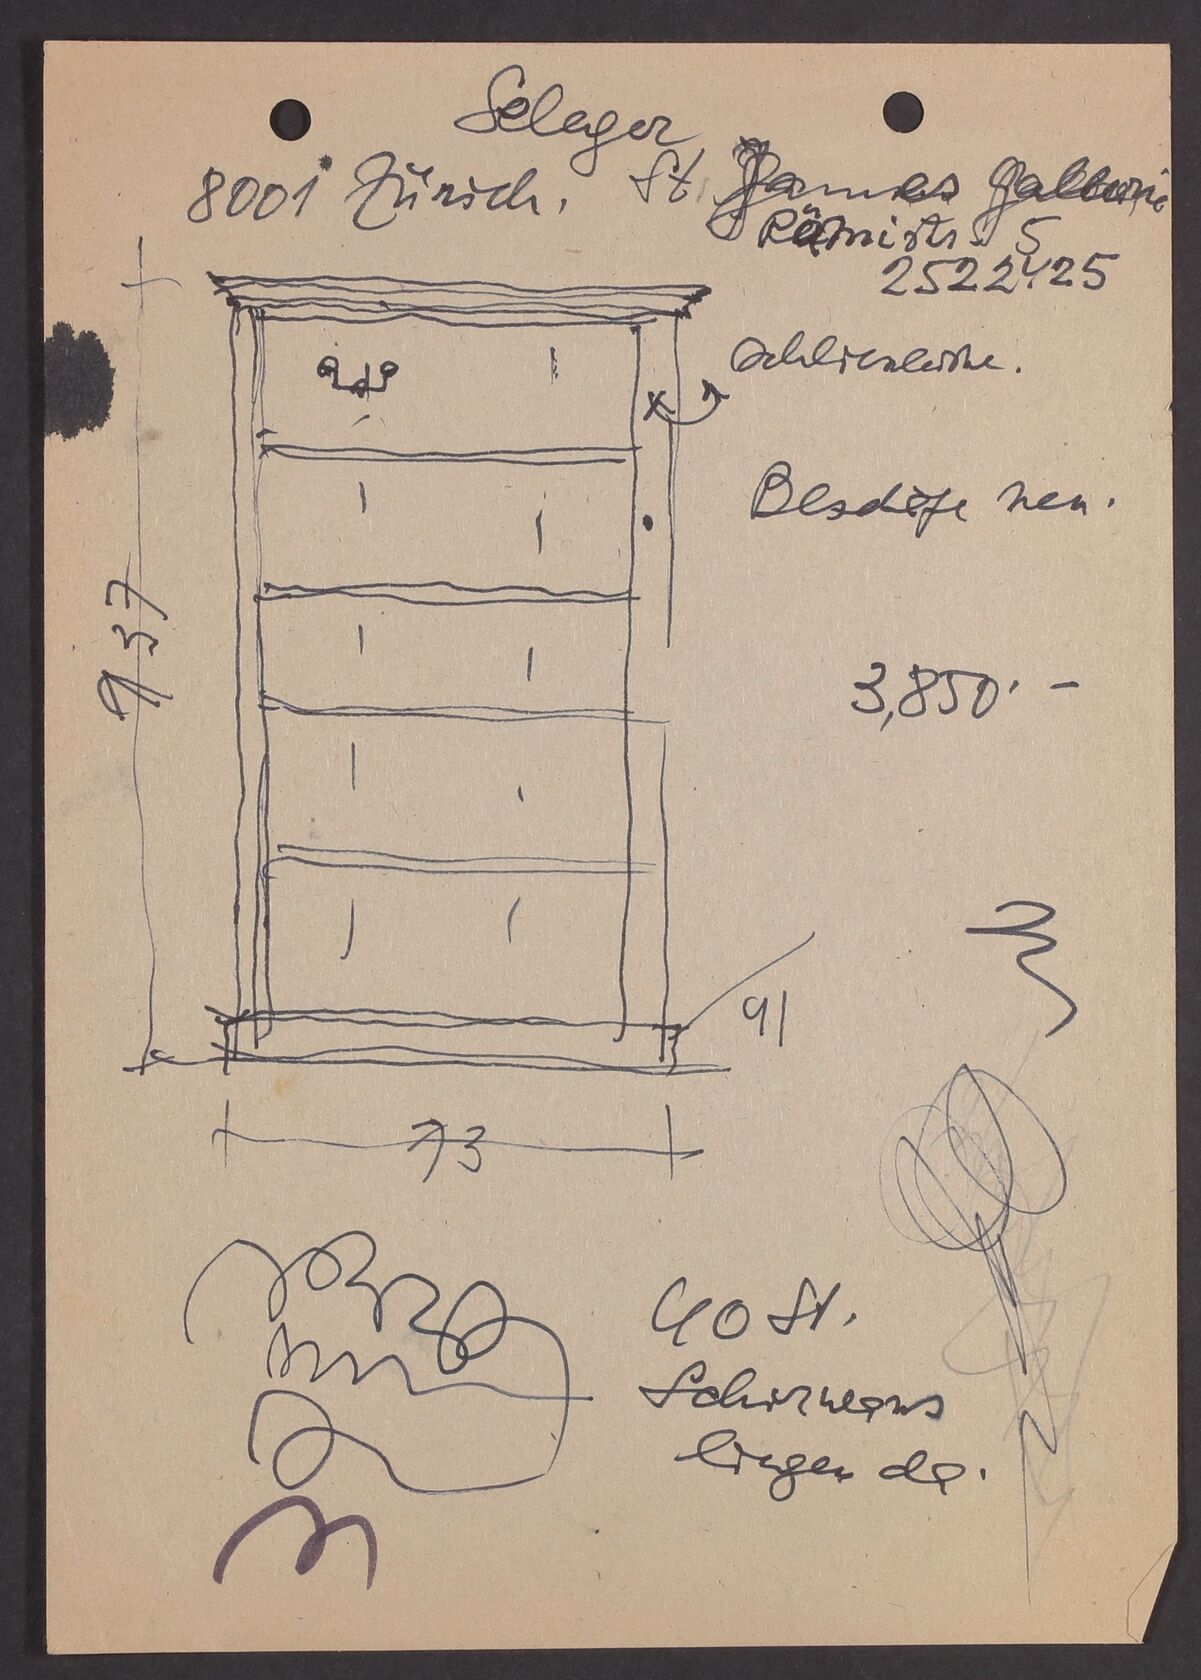 Seleger
8001 Zürich. St. James Gallerie
Rämistr. 5
2522425
Schliessleiste.
Beschläge neu.
137
3,850.-
91
73
40 St.
Schirmens
liegen da.